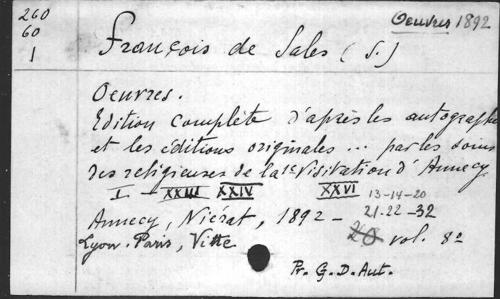 260
60
1
Oeuvres 1892
François de Sales (S.)
Oeuvres.
Edition complète d'après les autographes
et les éditions originales ... par les soins
des religieuses de la 1re Visitation d'Annecy
I - XXIII XXIV XXVI 13-14-20
21-22-32
Annecy, Niérat, 1892 -
Lyon-Paris, Vitte 20 vol. 8º
Pr. G. D. Aut.